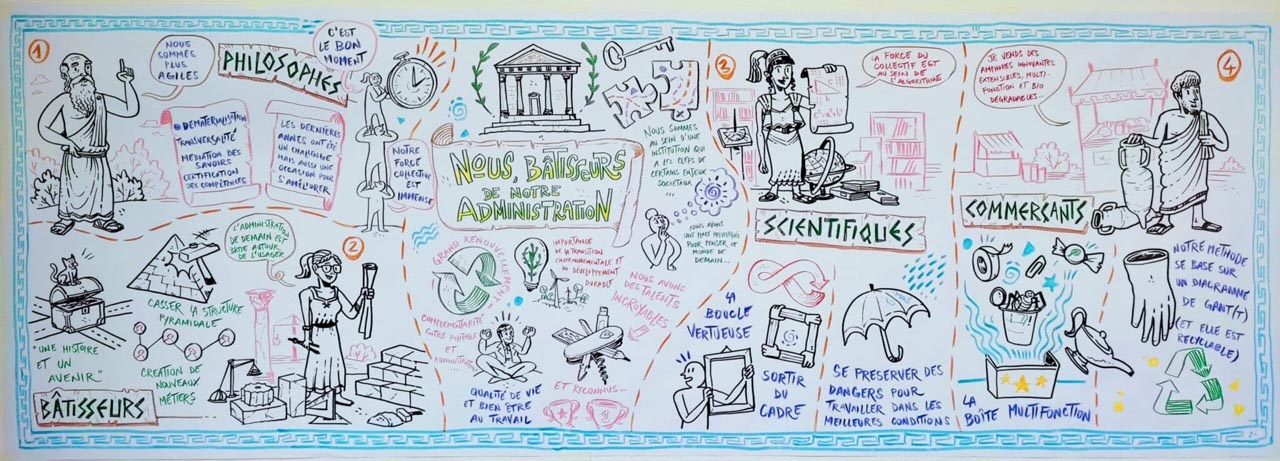 1
NOUS
SOMMES
PLUS
AGILES
PHILOSOPHES
C'EST
LE BON
MOMENT
DEMATERIALISATION
TRANSVERSALITÉ
MEDIATION DES
SAVOIRS
CERTIFICATION
DES COMPÉTENCES
LES DERNIÈRES
ANNÉES ONT ÉTÉ
UN CHALLENGE
MAIS AUSSI UNE
OCCASION POUR
S'AMÉLIORER
NOTRE
FORCE
COLLECTIVE
EST
IMMENSE
2
L'ADMINISTRATION
DE DEMAIN EST
BATIE AUTOUR
DE L'USAGER
CASSER LA STRUCTURE
PYRAMIDALE
"UNE HISTOIRE
ET UN
AVENIR"
CREATION DE
NOUVEAUX
MÉTIERS
BÂTISSEURS
NOUS, BÂTISSEURS
DE NOTRE
ADMINISTRATION
NOUS SOMMES
AU SEIN D'UNE
INSTITUTION QUI
A LES CLEFS DE
CERTAINS ENJEUX
SOCIETAUX
...
GRAND RENOUVELLEMENT
IMPORTANCE
DE LA TRANSITION
ENVIRONNEMENTALE ET
DU DÉVELOPPEMENT
DURABLE
NOUS AVONS
UNE PLACE PRIVILÉGIÉE
POUR PENSER LE
MONDE DE
DEMAIN...
NOUS AVONS
DES TALENTS
INCROYABLES
COMPLÉMENTARITÉ
ENTRE POLITIQUE
ET
ADMINISTRATIF
QUALITÉ DE VIE
ET BIEN ÊTRE
AU TRAVAIL
ET RECONNUS...
3
LA FORCE DU
COLLECTIF EST
AU SEIN DE
ALGORITHME
SCIENTIFIQUES
LA
BOUCLE
VERTUEUSE
SORTIR
DU
CADRE
SE PRESERVER DES
DANGERS POUR
TRAVAILLER DANS LES
MEILLEURES CONDITIONS
4
JE VENDS DES
AMPHORES INNOVANTES
EXTENSIBLES, MULTI-
FONCTION ET BIO
DEGRADABLES...
COMMERÇANTS
LA
BOÎTE MULTIFONCTION
NOTRE METHODE
SE BASE SUR
UN DIAGRAMME
DE GANT(T)
(ET ELLE EST
RECYCLABLE)